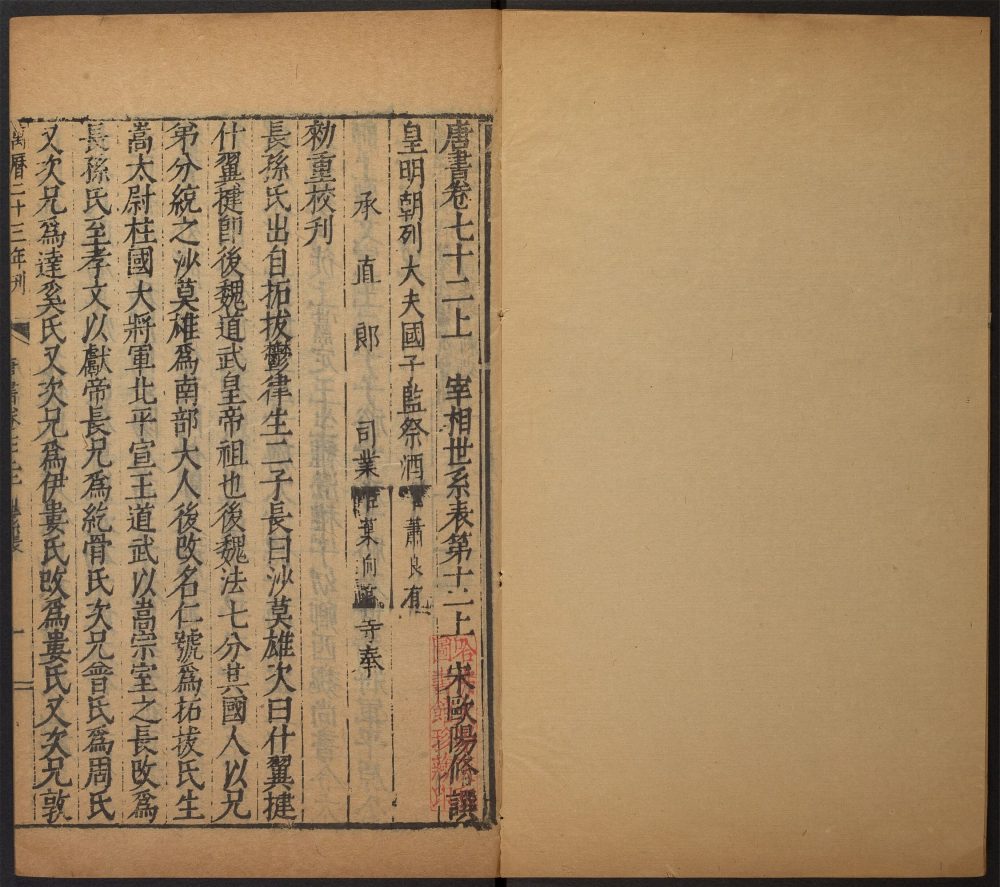 唐書卷七十二上 宰相世系表第十二上 宋歐陽脩譔
皇明朝列大夫國子監祭酒 蕭良有
承直郎 司業 葉向高等奉
勑重校刋
長孫氏出自拓拔鬱律生二子長曰沙莫雄次曰什翼揵
什翼揵卽後魏道武皇帝祖也後魏法七分其國人以兄
弟分統之沙莫雄爲南部大人後改名仁號爲拓拔氏生
嵩太尉柱國大將軍北平宣王道武以嵩宗室之長改爲
長孫氏至孝文以獻帝長兄爲紇骨氏次兄普氏爲周氏
又次兄爲達奚氏又次兄爲伊婁氏改爲婁氏又次兄敦
萬曆二十三年刋
哈
圖書館珍